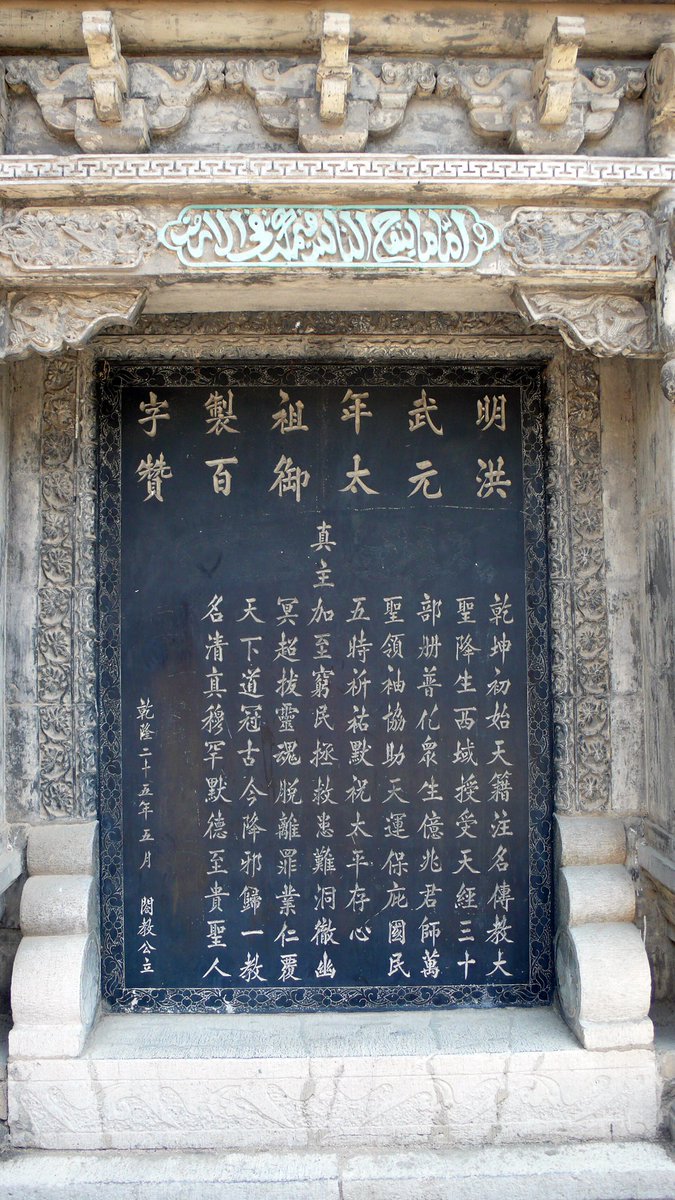 واما ما ينفع الناس فيمكث في الارض
明洪
武元
年太
祖御
製百
字贊
乾坤初始天籍注名傳教大
聖降生西域授受天經三十
部册普化眾生億兆君師萬
聖領袖協助天運保庇國民
五時祈祜默祝太平存心
真主加至窮民拯救患難洞徹幽
冥超拔靈魂脫離罪業仁覆
天下道冠古今降邪歸一教
名清真穆罕默德至貴聖人
乾隆二十五年五月 閤教公立